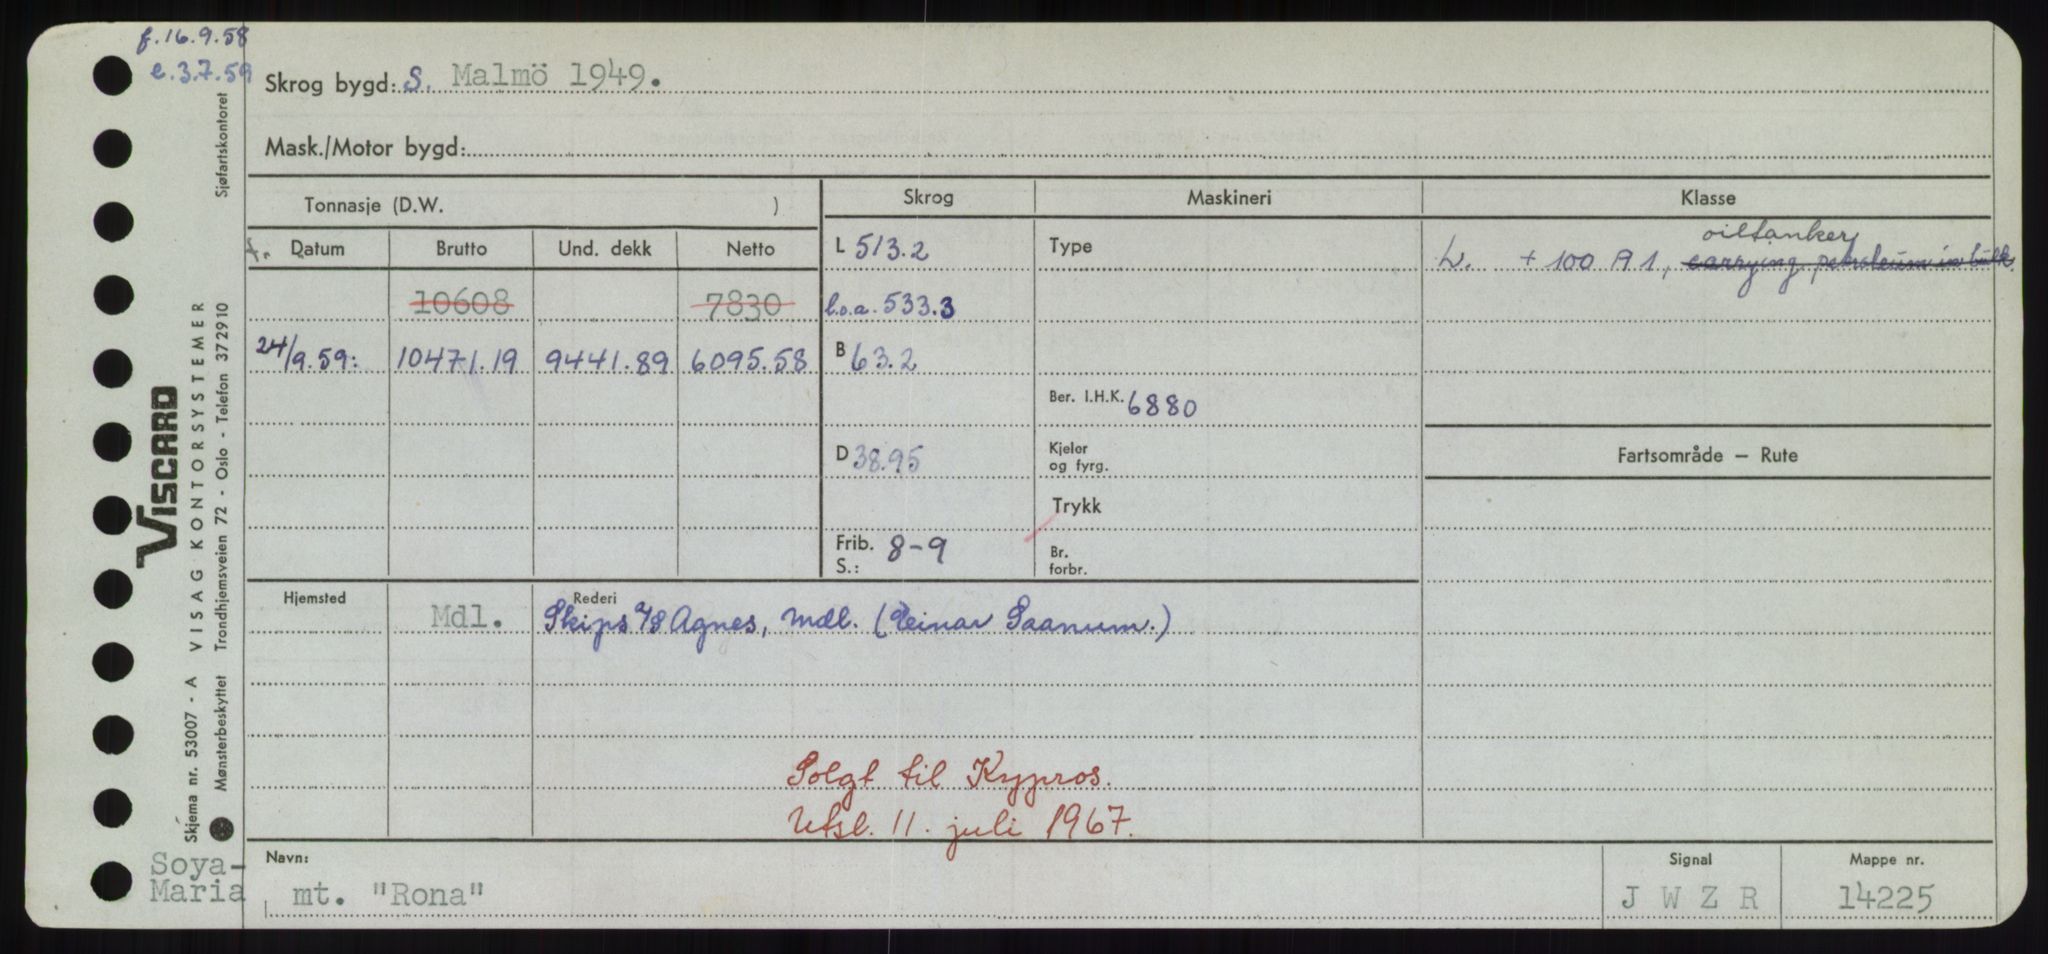 f. 16.9.58
e. 3.7.59
Skrog bygd: S. Malmö 1949.
Mask./Motor bygd:
Tonnasje (D.W. )
Skrog
Maskineri
Klasse
Datum Brutto Und. dekk Netto
L 513.2
Type
L. + 100 A 1, carrying petroleum in bulk
oiltanker
10608 7830
l.o.a. 533.3
24/9.59: 10471.19 9441.89 6095.58
B 63.2
Ber. I.H.K. 6880
D 38.95
Kjeler
og fyrg.
Fartsområde — Rute
Trykk
Frib. 8-9
S.:
Br.
forbr.
Hjemsted Mdl.
Rederi
Skips A/S Agnes, Mdl. (Einar Saanum.)
Solgt til Kypros.
Utsl. 11. juli 1967.
Soya-
Maria
Navn:
mt. "Rona"
Signal
J W Z R
Mappe nr.
14225
Skjema nr. 53007 - A VISAG KONTORSYSTEMER
VISCARD
Mønsterbeskyttet Trondhjemsveien 72 - Oslo - Telefon 372910
Sjøfartskontoret